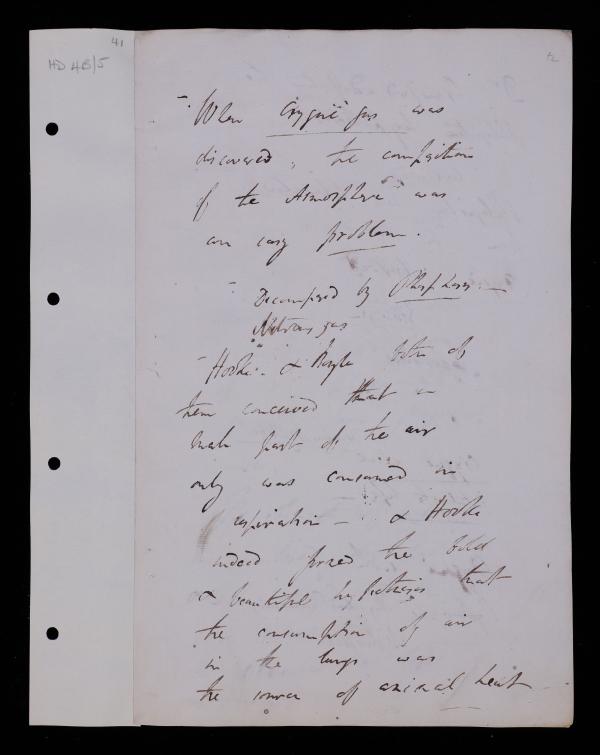 41
HD 4B/5
- When Oxygene gas was
discovered, the composition
of the Atmosphere was
an easy problem.
- Decomposed by Phosphorus. -
Nitrous gas
- Hooke - & Boyle both of
them conceived that a
small part of the air
only was consumed in
respiration - & Hooke
indeed formed the bold
& beautiful hypothesis that
the consumption of air
in the lungs was
the source of animal heat -